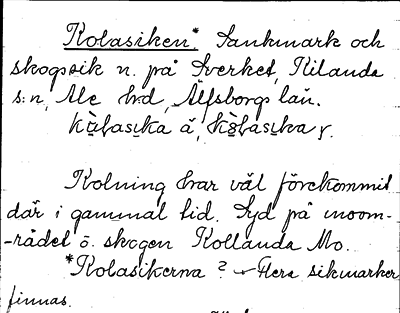 Kolasiken.* Sankmark och
skogssik n. på Sverket, Kilanda
s:n, Ale hrd, Älfsborgs län.
kɷ̀lasɩka å, kòlasɩka y.
Kolning har väl förekommit
där i gammal tid. Syd på inom-
-rådet ö. skogen Kollanda Mo.
*Kolasikerna? Flera sikmarker
finnas.